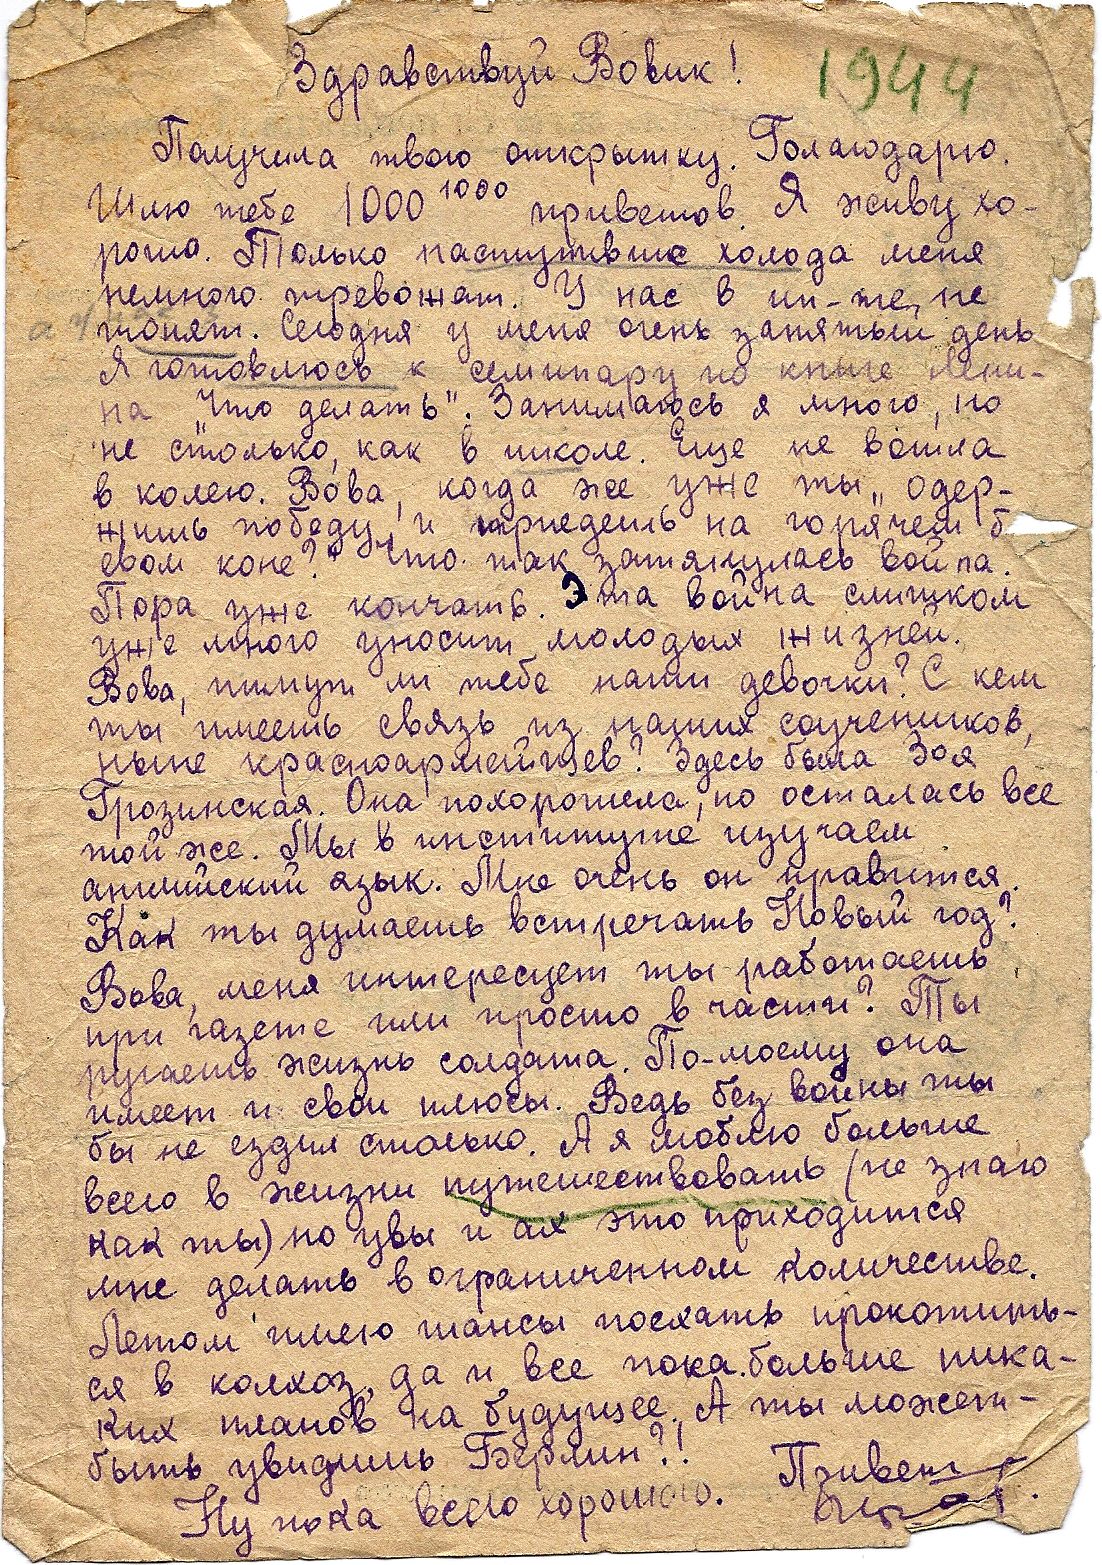 1944
Здравствуй Вовик!
Получила твою открытку. Благодарю.
Шлю тебе 1000¹⁰⁰⁰ приветов. Я живу хо-
рошо. Только наступившие холода меня
немного тревожат. У нас в ин-те, не
топят. Сегодня у меня очень занятый день
Я готовлюсь к семинару по книге Лени-
на „Что делать". Занимаюсь я много, но
не столько, как в школе. Еще не вошла
в колею. Вова, когда же уже ты „одер-
жишь победу и приедешь на горячем б
евом коне?" Что так затянулась война.
Пора уже кончать. Эта война слишком
уже много уносит молодых жизней.
Вова, пишут ли тебе наши девочки? С кем
ты имеешь связь из наших соучеников,
ныне красноармейцев? Здесь была Зоя
Грозинская. Она похорошела, но осталась все
той же. Мы в институте изучаем
английский язык. Мне очень он нравится.
Как ты думаешь встречать Новый год?
Вова, меня интересует ты работаешь
при газете или просто в части? Ты
ругаешь жизнь солдата. По-моему она
имеет и свои плюсы. Ведь без войны ты
бы не ездил столько. А я люблю больше
всего в жизни путешествовать (не знаю
как ты) но увы и ах это приходится
мне делать в ограниченном количестве.
Летом имею шансы поехать прокотить-
ся в колхоз, да и все пока. больше ника-
ких планов на будущее. А ты может-
быть увидишь Берлин?!
Ну пока всего хорошого. Привет